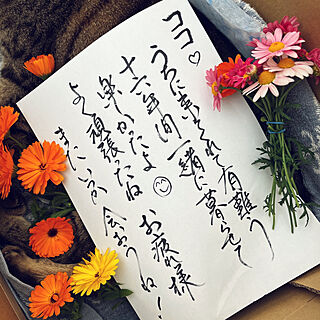 ココ♡
うちに来てくれて有難う
十六年間一緒に暮らせて
楽しかったよ
お疲れ様
よく頑張ったね
またいつか
会おうね!